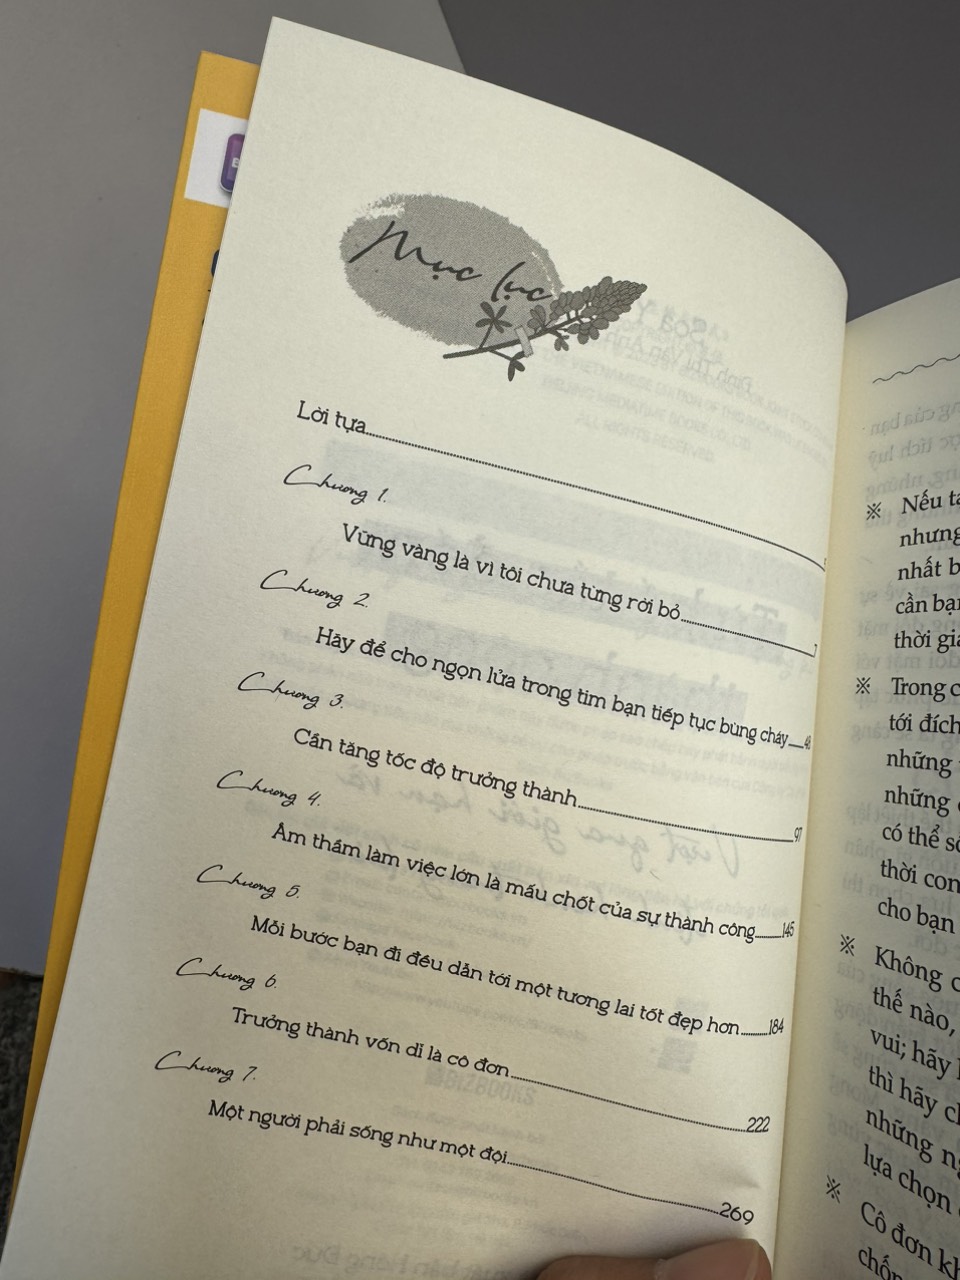 Mục lục
Lời tựa
Chương 1.
Vững vàng là vì tôi chưa từng rời bỏ 7
Chương 2.
Hãy để cho ngọn lửa trong tim bạn tiếp tục bùng cháy 48
Chương 3.
Cần tăng tốc độ trưởng thành 97
Chương 4.
Âm thầm làm việc lớn là mấu chốt của sự thành công 145
Chương 5.
Mỗi bước bạn đi đều dẫn tới một tương lai tốt đẹp hơn 184
Chương 6.
Trưởng thành vốn dĩ là cô đơn 222
Chương 7.
Một người phải sống như một đội 269
※ Nếu
nhưng
nhất
cần bạn
thời
※ Trong
tới đích
những
những
có thể
thời con
cho bạn
※ Không
thế nào,
vui; hãy
thì hãy
những
lựa chọn
※ Cô đơn